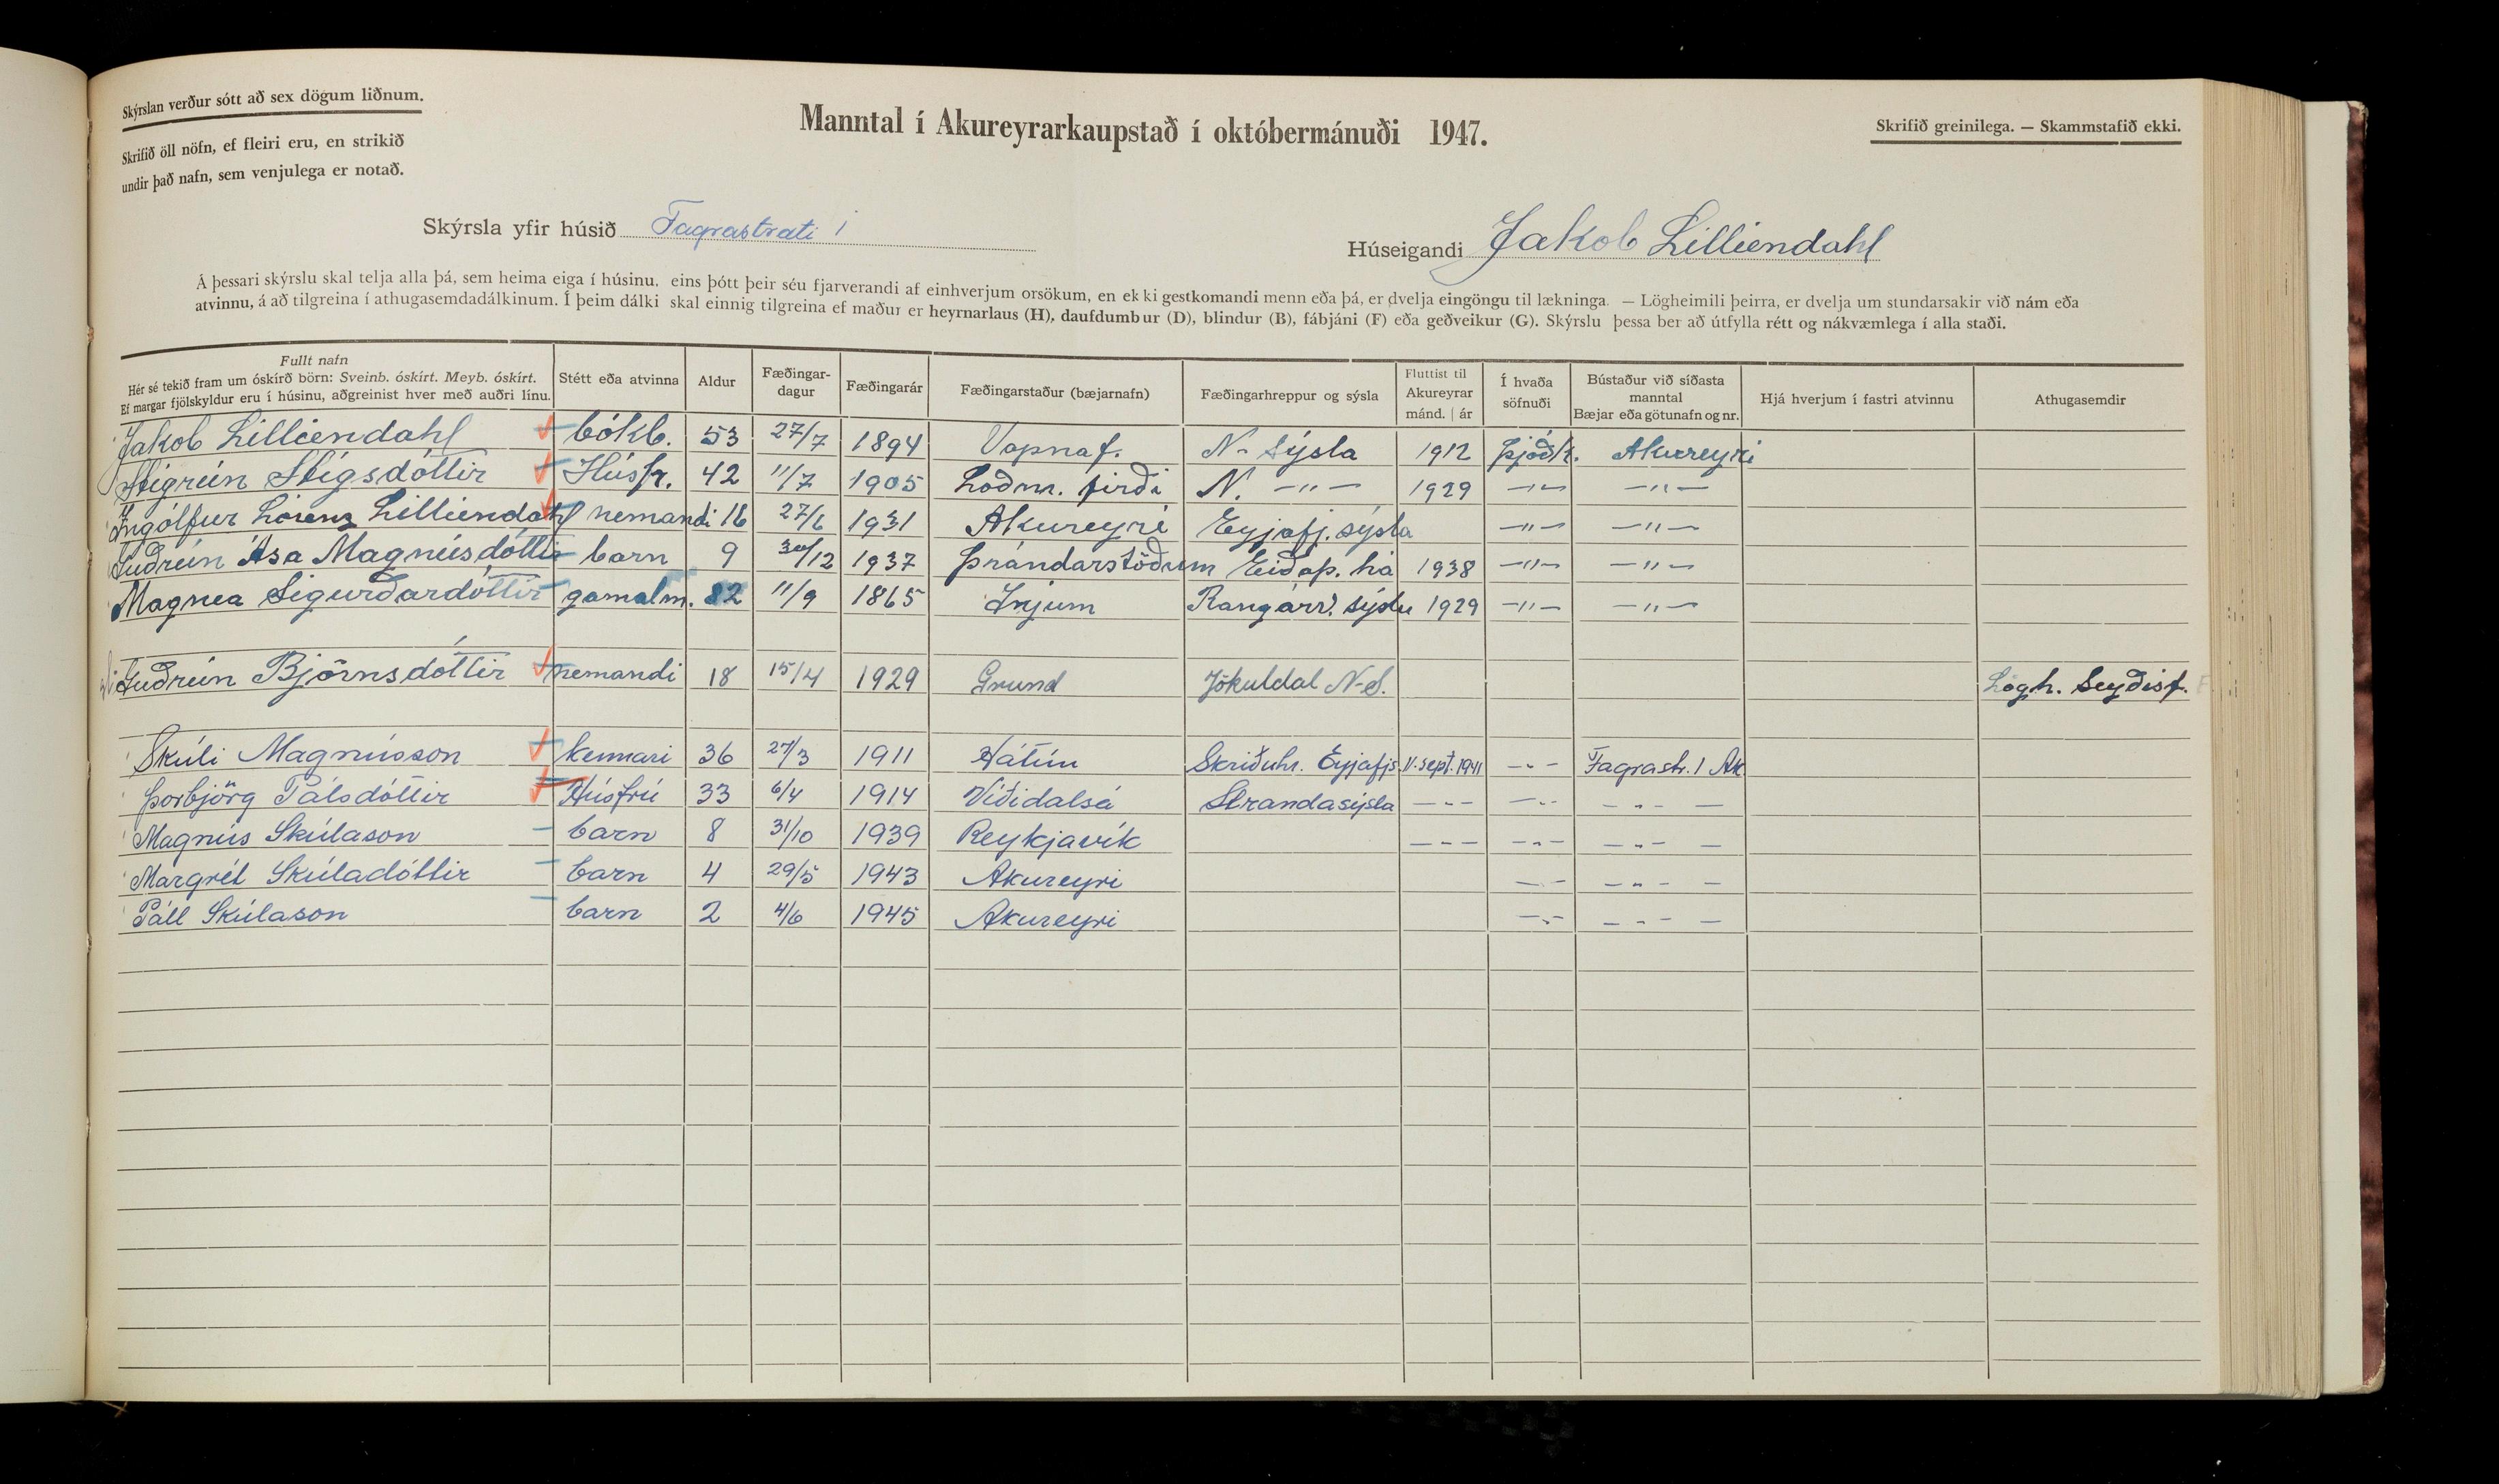 Skýrslan verður sótt að sex dögum liðnum.
Skrifið öll nöfn, ef fleiri eru, en strikið
undir það nafn, sem venjulega er notað.
Manntal í Akureyrarkaupstað í októbermánuði 1947.
Skrifið greinilega. — Skammstafið ekki.
Skýrsla yfir húsið Fagrastræti 1
Húseigandi Jakob Lilliendahl
Á þessari skýrslu skal telja alla þá, sem heima eiga í húsinu, eins þótt þeir séu fjarverandi af einhverjum orsökum, en ekki gestkomandi menn eða þá, er dvelja eingöngu til lækninga. — Lögheimili þeirra, er dvelja um stundarsakir við nám eða
atvinnu, á að tilgreina í athugasemdadálkinum. Í þeim dálki skal einnig tilgreina ef maður er heyrnarlaus (H), daufdumbur (D), blindur (B), fábjáni (F) eða geðveikur (G). Skýrslu þessa ber að útfylla rétt og nákvæmlega í alla staði.
Fullt nafn Hér sé tekið fram um óskírð börn: Sveinb. óskírt. Meyb. óskírt. Ef margar fjölskyldur eru í húsinu, aðgreinist hver með auðri línu. Stétt eða atvinna Aldur Fæðingar-dagur Fæðingarár Fæðingarstaður (bæjarnafn) Fæðingarhreppur og sýsla Fluttist til Akureyrar mánd. | ár Í hvaða söfnuði Bústaður við síðasta manntal Bæjar eða götunafn og nr. Hjá hverjum í fastri atvinnu Athugasemdir
Jakob Lilliendahl bókb. 53 27/7 1894 Vopnaf. N-Sýsla 1912 Þjóðk. Akureyri
Stígrún Stígsdóttir Húsfr. 42 11/7 1905 Loðm. firði N. —"— 1929 —"— —"—
Ingólfur Lórenz Lilliendahl nemandi 16 27/6 1931 Akureyri Eyjafj. sýsla —"— —"—
Guðrún Ása Magnúsdóttir barn 9 30/12 1937 Þrándarstöðum Eiðaþ. há 1938 —"— —"—
Magnea Sigurðardóttir gamalm. 82 11/9 1865 Rangárv. sýslu 1929 —"— —"—
Guðrún Björnsdóttir nemandi 18 15/4 1929 Grund Jökuldal N-S. Lögh. Seyðisf.
Skúli Magnússon kennari 36 27/3 1911 Hátún Skriðuhr. Eyjafjs. 11. sept. 1941 - " - Fagrastr. 1 Ak
Þorbjörg Pálsdóttir Húsfrú 33 6/4 1914 Víðidalsá Strandasýsla - " - - " - - " - -
Magnús Skúlason barn 8 31/10 1939 Reykjavík - " - - " - - " - -
Margrét Skúladóttir barn 4 29/5 1943 Akureyri - " - - " - -
Páll Skúlason barn 2 4/6 1945 Akureyri - " - - " - -